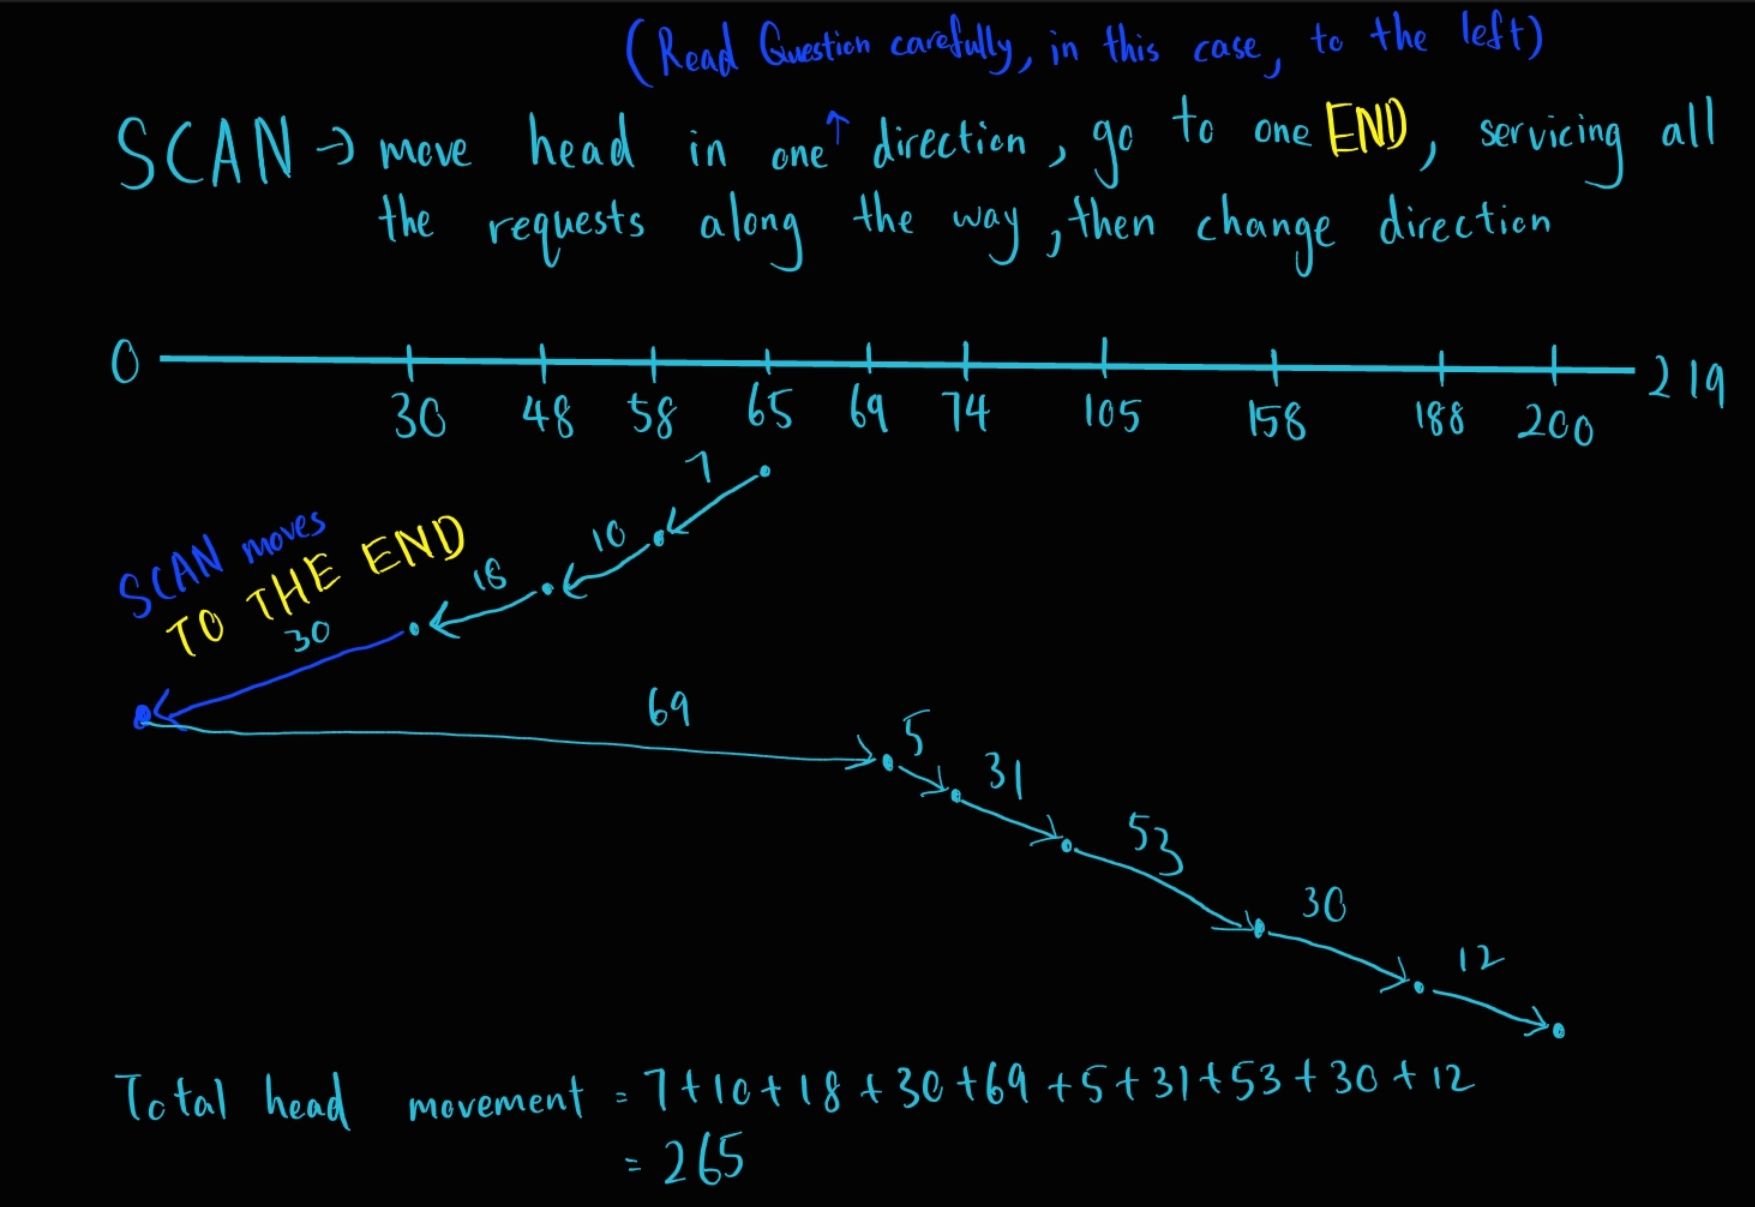 (Read Question carefully, in this case, to the left)
SCAN → move head in one ↑ direction, go to one END, servicing all
the requests along the way, then change direction
0 219
30 48 58 65 69 74 105 158 188 200
7
10
18
SCAN moves
TO THE END
30
69
5
31
53
30
12
Total head movement = 7+10+18+30+69+5+31+53+30+12
= 265